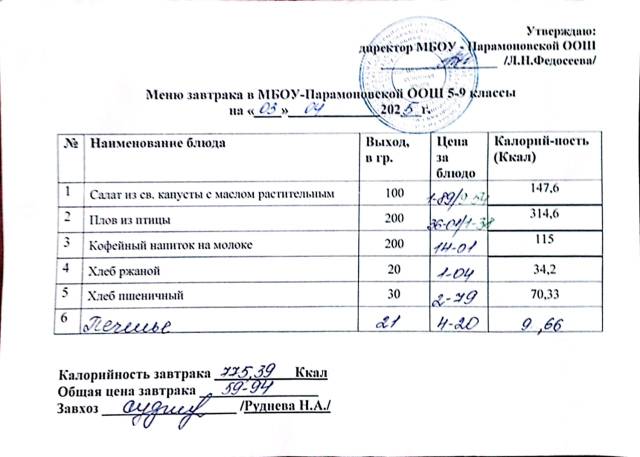 Утверждаю:
директор МБОУ - Парамоновской ООШ
/Л.Н.Федосеева/
Меню завтрака в МБОУ-Парамоновской ООШ 5-9 классы
на «03» 04 2025 г.
№ Наименование блюда Выход, в гр. Цена за блюдо Калорий-ность (Ккал)
1 Салат из св. капусты с маслом растительным 100 1-89/ 147,6
2 Плов из птицы 200 36-01/1-38 314,6
3 Кофейный напиток на молоке 200 14-01 115
4 Хлеб ржаной 20 1-04 34,2
5 Хлеб пшеничный 30 2-79 70,33
6 Печенье 21 4-20 9,66
Калорийность завтрака 775,39 Ккал
Общая цена завтрака 59-94
Завхоз /Руднева Н.А./